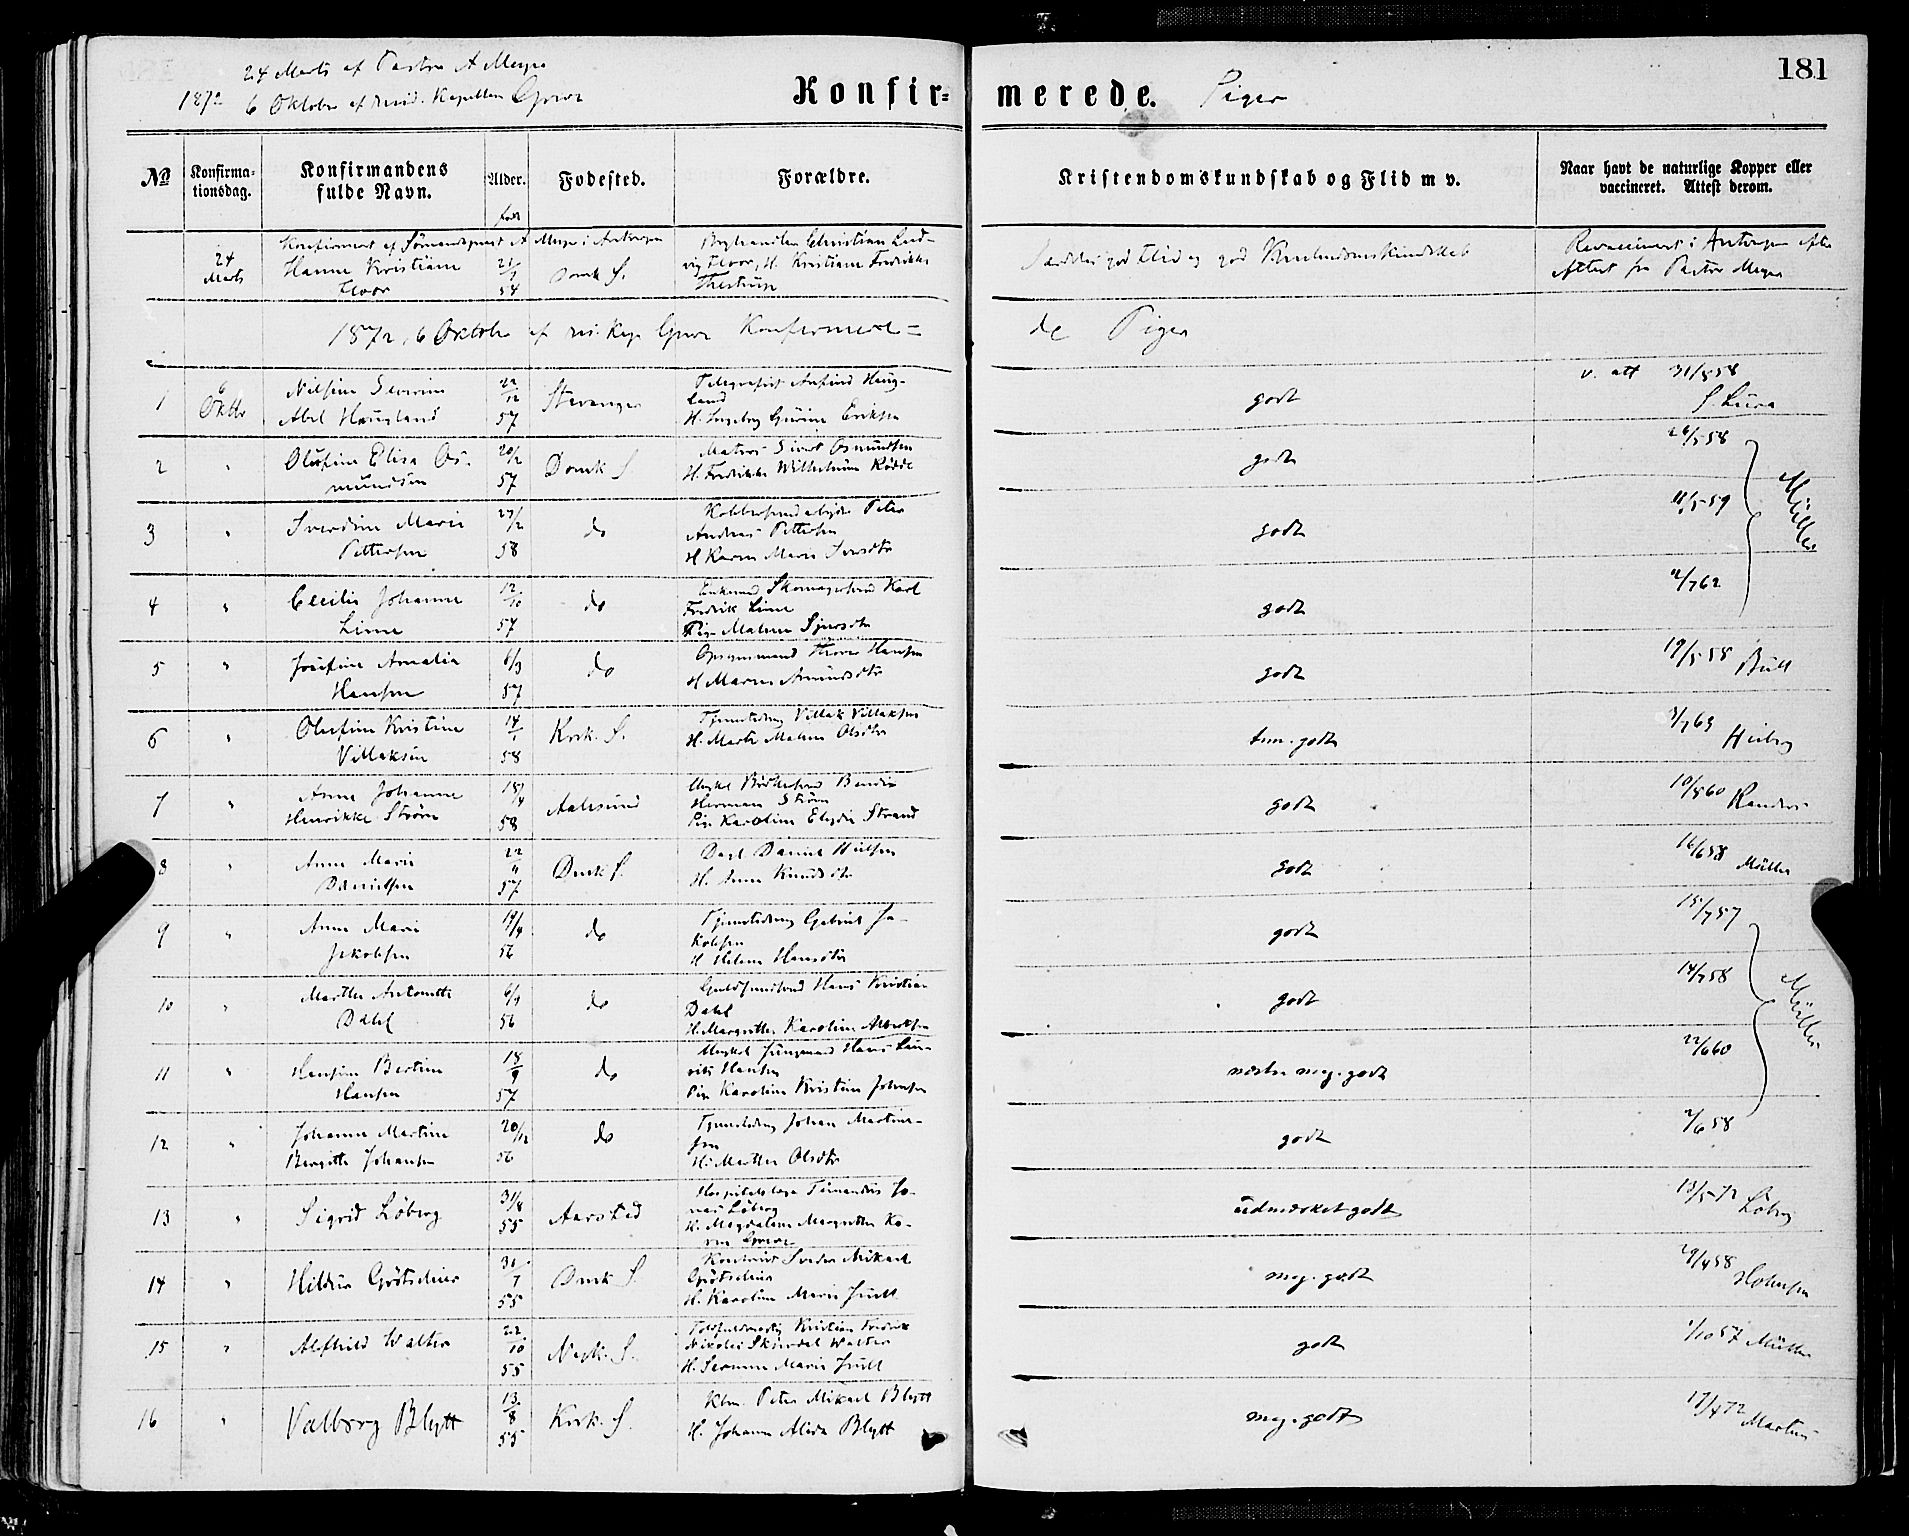 24 Marts af Pastor A Meyer
1872 6 Oktober af resid. Kapellan Greve
Konfir=
merede. Piger
181
№ Konfirma-
tionsdag. Konfirmandens
fulde Navn. Alder. Fodested. Forældre. Kristendomskundskab og Flid m v. Naar havt de naturlige Kopper eller
vaccineret. Attest derom.
født
Konfirmert af Sømandspræst A Meyer i Antwerpen
24 Marts Hanne Kristiane
Floor 21/7 54 Domk S. Christian Lud-
vig Floor, H. Kristiane Fredrikke
god Flid og god Kristendomskundskab Revaccinert i Antwerpen efter
Attest fra Pastor Meyer
1872, 6 Oktober af res. Kap Greve Konfirmere=
de Piger
1 6 Oktbr Nilsine Severine
Abel Haugland 22/12 57 Stavanger Telegrafist Anfind Haug-
land
H. Ingeborg Eriksen godt v. att 31/8 58
S. Lura
2 " Olufine Elisa Os-
mundsen 20/2 57 Domk S Matros Sivert Osmundsen
H. Fredrikke Wilhelmine godt 26/5 58
3 " Marie
Pettersen 27/2 58 do Peter
Andreas Pettersen
H Karen Marie godt 59 Müller
4 " Cecilie Johanne
Lime 12/10 57 do Enkemand Skomagersvend Karl
Fredrik Lime
Pige Malene godt 2/7 62
5 " Josefine Amalia
Hansen 6/3 57 do Hansen
H Maren godt 19/5 58 Bull
6 " Olufine Kristine
Villaksen 14/1 58 Kork. S. Tjenestedreng Villak Villaksen
H. Marte Malene Olsdtr tem. godt 3/7 63 Heiberg
7 " Anne Johanne
Henrikke Strøm 15/4 58 Aalesund Ungkel Bødkersvend
Herman Strøm
Pige Karoline Strand godt 10/8 60 Randers
8 " Anne Marie
Danielsen 22/11 57 Domk S. Dagl Daniel
H. Anne Knudsdtr godt 16/6 58 Müller
9 " Anne Marie
Jakobsen 56 do Tjenestedreng Gabriel Ja-
kobsen
H Helene Hansdtr godt 15/7 57
10 " Marthe Antonette
Dahl 56 do Guldsmedsvend Hans Kristian
Dahl
H. Margrethe Karoline godt 14/7 58 Müller
11 " Hansine Bertine
Hansen 18/9 57 do Ungkel Jungmand Hans Lau-
rits Hansen
Pige Karoline Kristine Johnsen næsten meg. godt 22/6 60
12 " Johanne Martine
Bergitte Johansen 20/12 56 do Tjenestedreng Johan Martinu-
sen
H. Marthe Olsdtr godt 2/6 58
13 " Sigrid Løberg 31/8 55 Aarstad Hospitalslæge Timandus Jo-
nas Løberg
H. Magdalene Margrethe Ka-
ren Greve udmærket godt 13/5 72 Løberg
14 " Hildur Grøtschier 31/7 55 Domk S. Mikael
Grøtschier
H. Karoline Marie Juell meg. godt 29/4 58 Holmsen
15 " Alfhild Walter 22/10 55 Nyk. S. Kristian Fredrik
Nikolai Walter
H. Marie Juell godt 1/10 57 Müller
16 " Valborg Blytt 13/8 55 Kork. S. Kbm. Peter Mikael Blytt
H. Johanne Alida Blytt meg. godt 17/4 72 Martens